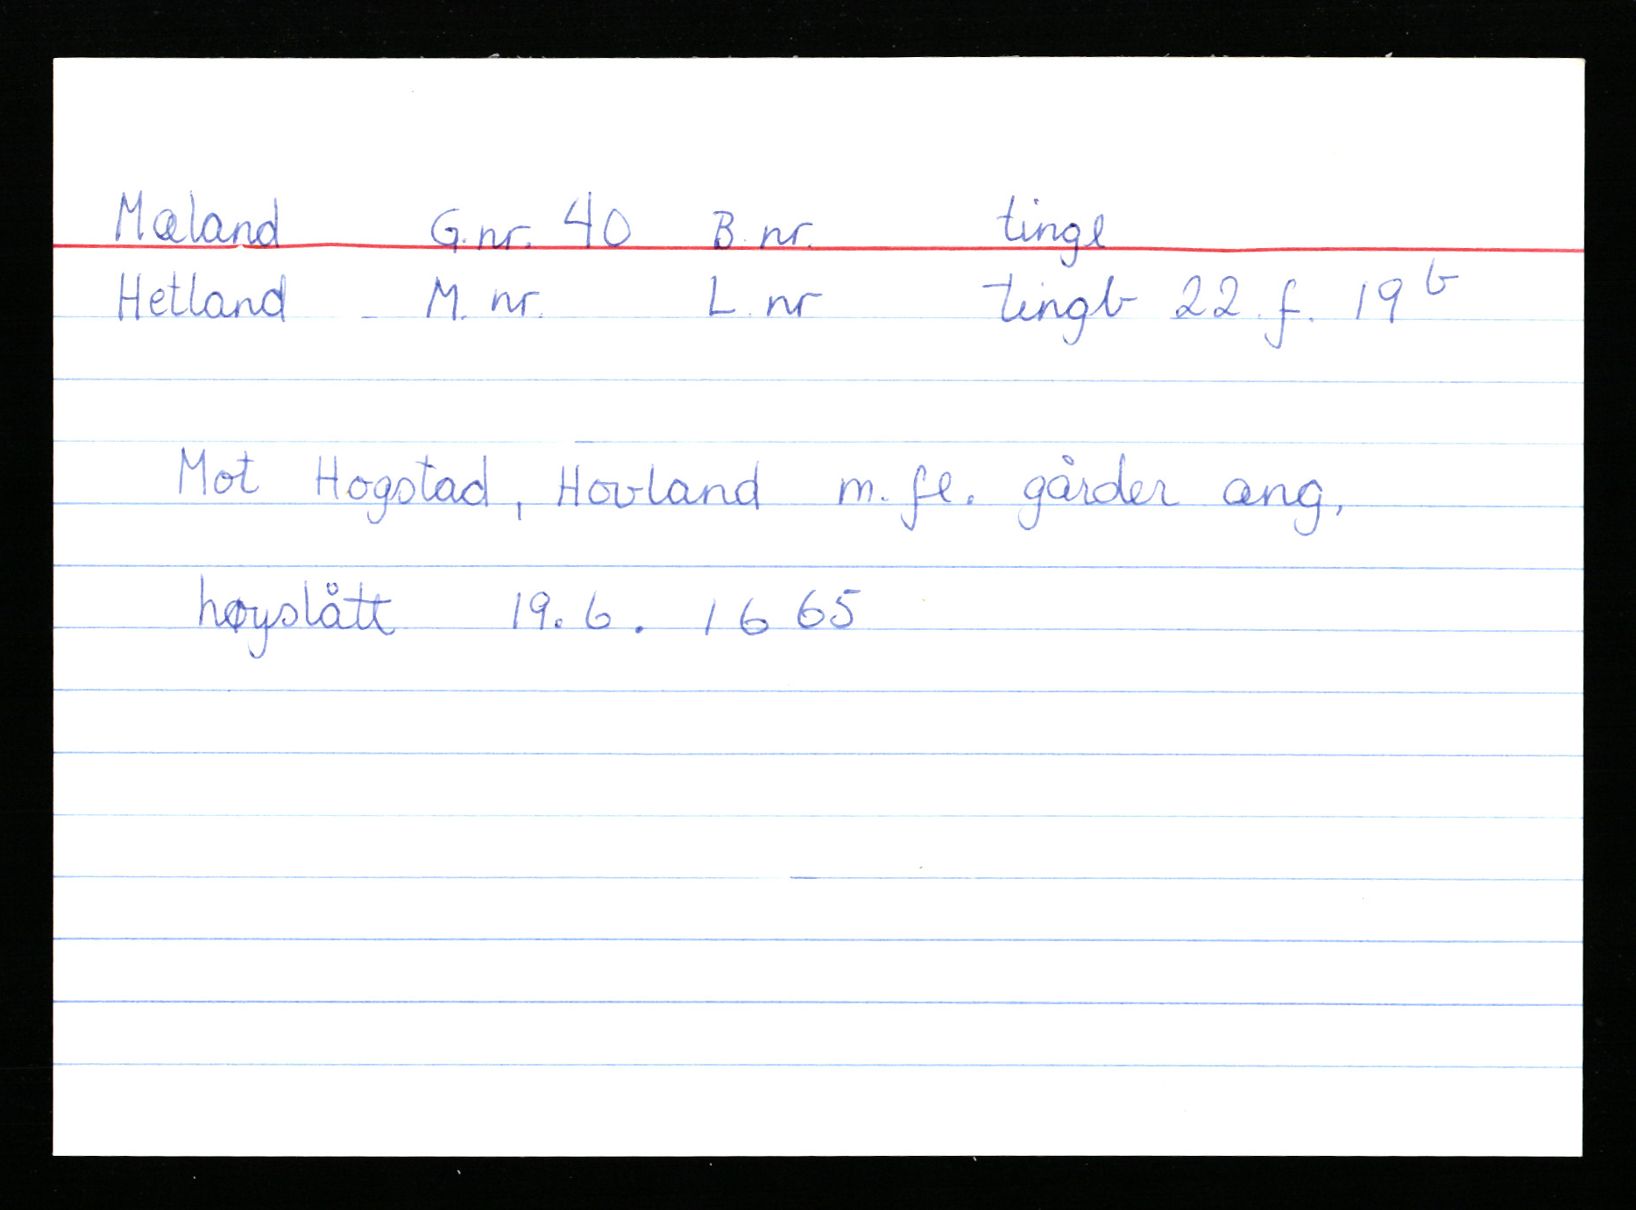 Mæland G.nr. 40 B.nr. tingl
Hetland M.nr. L.nr tingb 22.f. 19 b
Mot Hogstad, Hovland m.fl. gårder ang,
høyslått 19.6. 1665